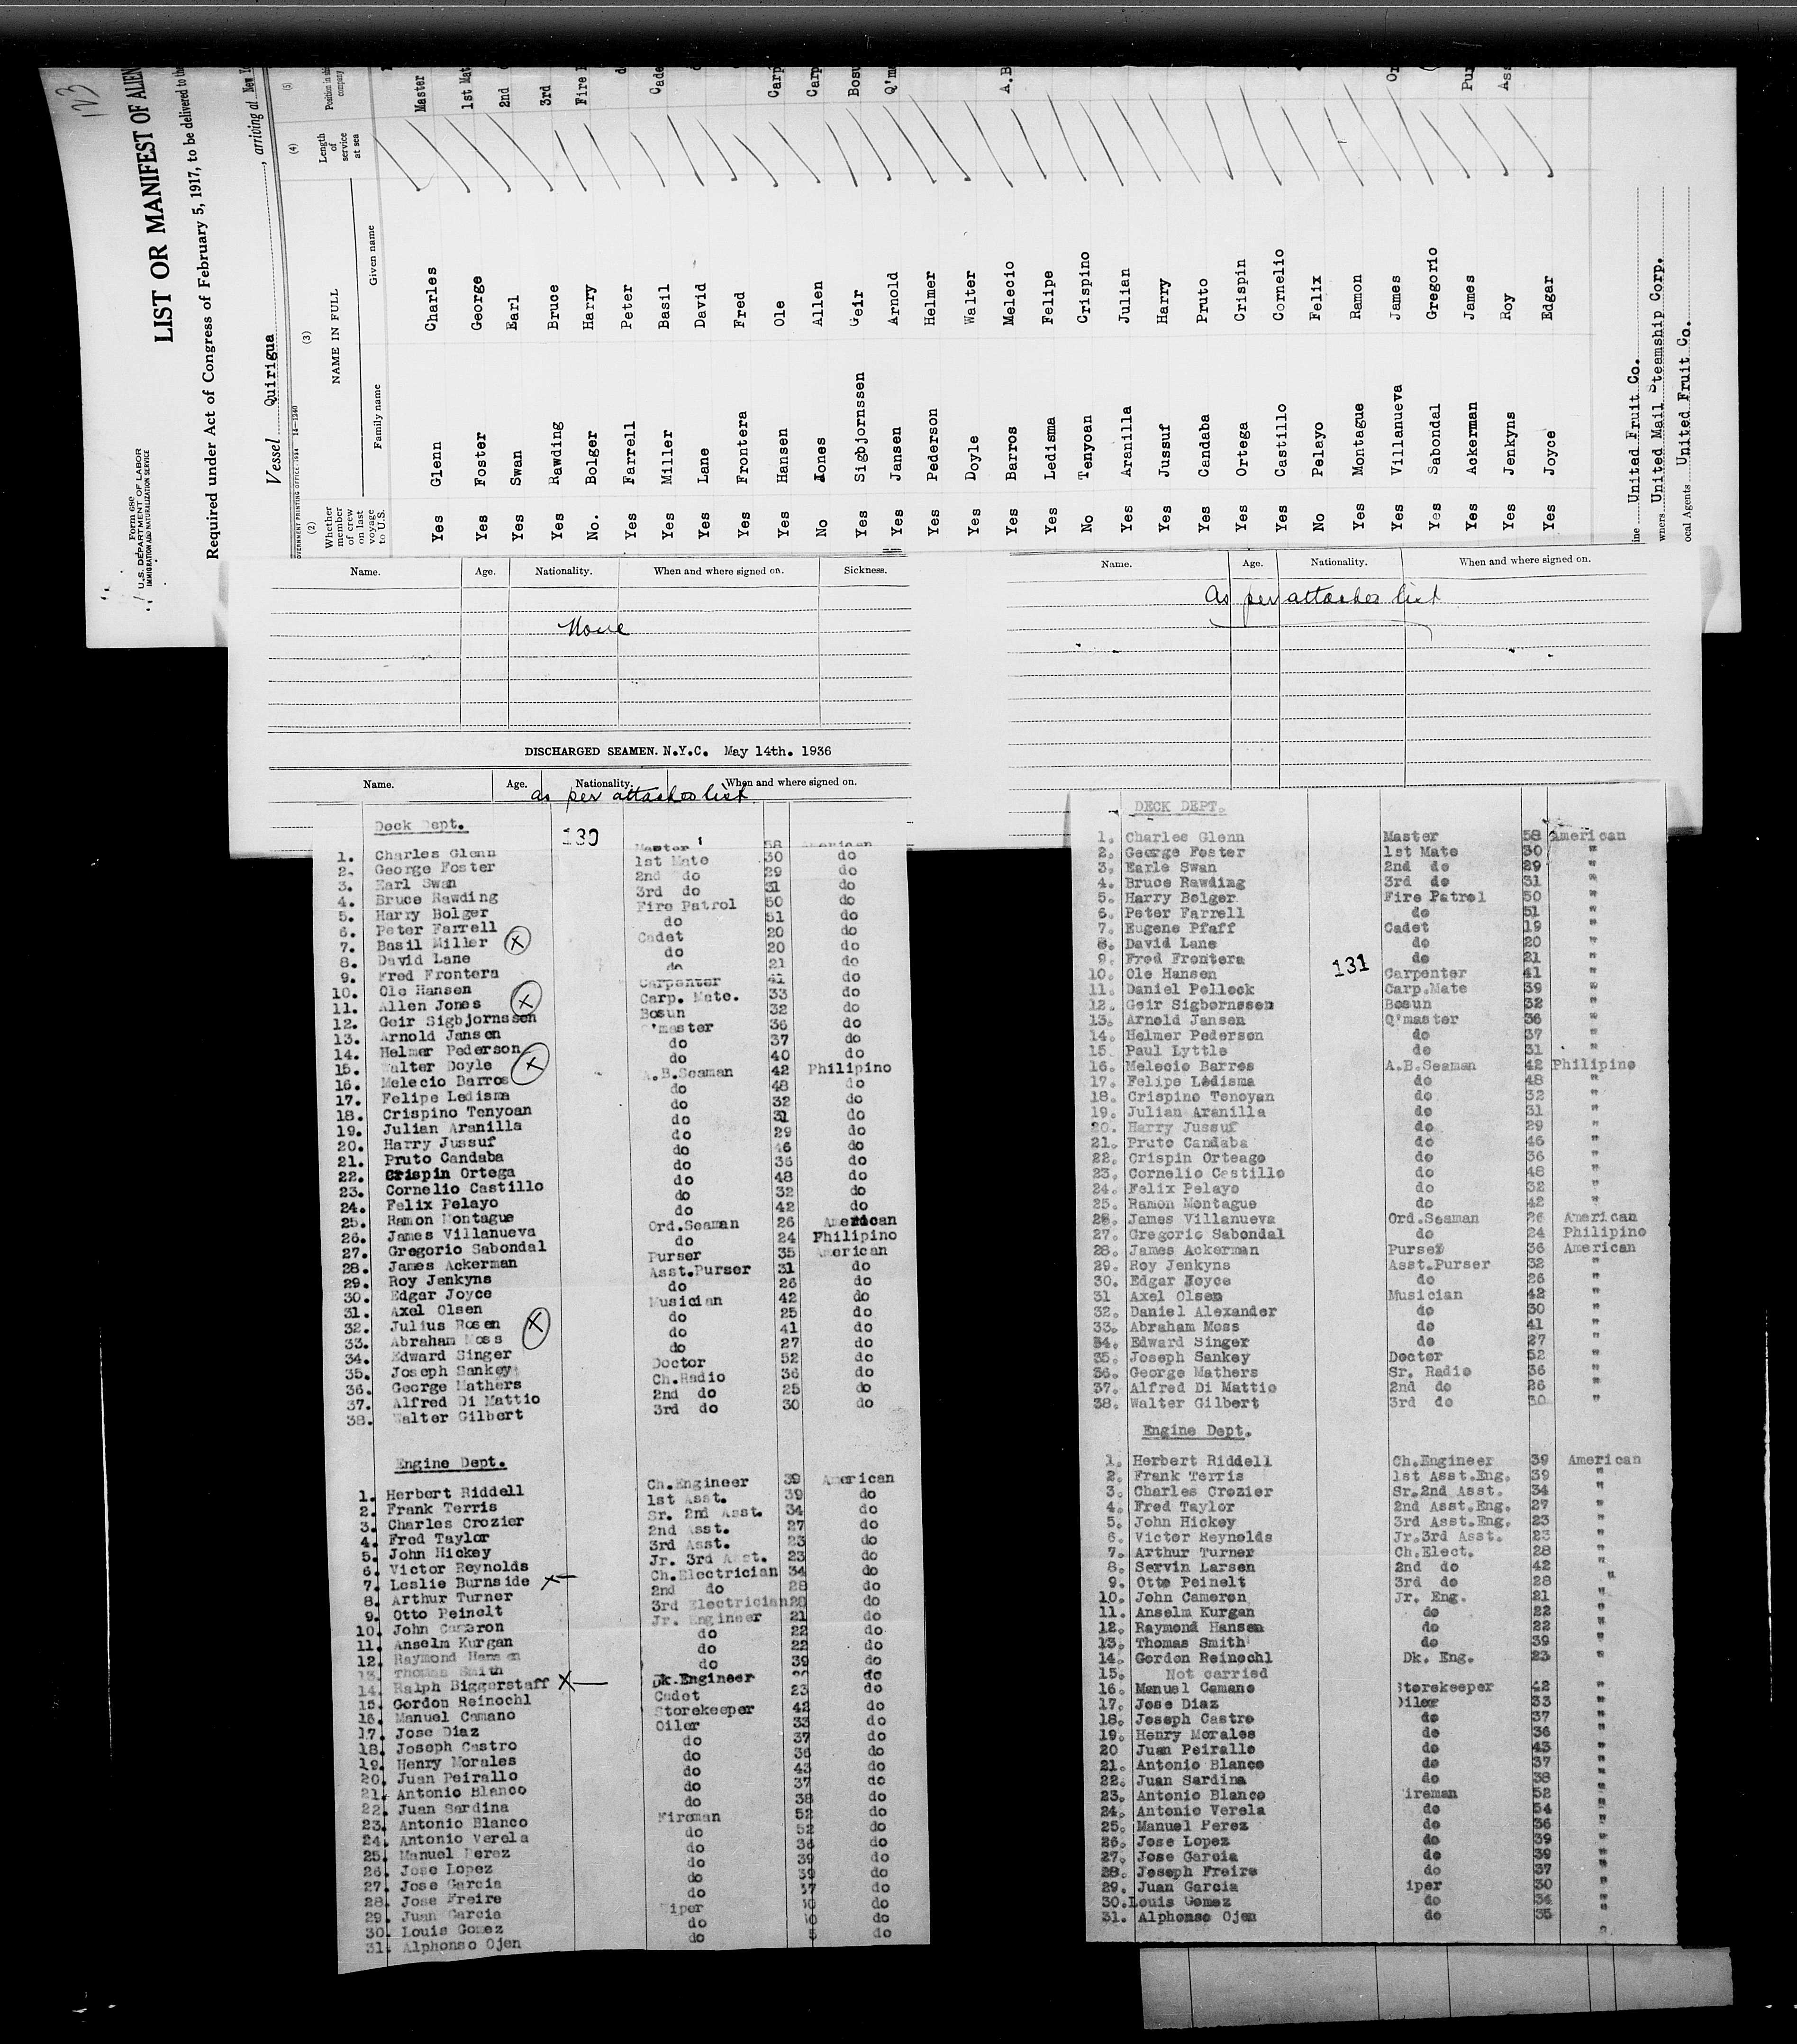 123
Form 680
U.S. DEPARTMENT OF LABOR
IMMIGRATION AND NATURALIZATION SERVICE
LIST OR MANIFEST OF ALIEN
Required under Act of Congress of February 5, 1917, to be delivered to the
Vessel Quirigua, arriving at New Y
(2) (3) (4) (5)
Whether member of crew on last voyage to U.S. NAME IN FULL Length of service at sea Position in ship's company
Family name Given name
Yes Glenn Charles Master
Yes Foster George 1st Mat
Yes Swan Earl 2nd
Yes Rawding Bruce 3rd
No. Bolger Harry Fire
Yes Farrell Peter
Yes Miller Basil Cade
Yes Lane David
Yes Frontera Fred
Yes Hansen Ole Carp
No Jones Allen Carp
Yes Sigbjornssen Geir Bosu
Yes Jansen Arnold Q'm
Yes Pederson Helmer
Yes Doyle Walter
Yes Barros Melecio A.B
Yes Ledisma Felipe
No Tenyoan Crispino
Yes Aranilla Julian
Yes Jussuf Harry
Yes Candaba Pruto
Yes Ortega Crispin
Yes Castillo Cornelio
No Pelayo Felix
Yes Montague Ramon
Yes Villanueva James Or
Yes Sabondal Gregorio
Yes Ackerman James Pur
Yes Jenkyns Roy Ass
Yes Joyce Edgar
ine United Fruit Co.
wners United Mail Steamship Corp.
ocal Agents United Fruit Co.
Name. Age. Nationality. When and where signed on. Sickness.
None
DISCHARGED SEAMEN. N.Y.C. May 14th. 1936
Name. Age. Nationality. When and where signed on.
as per attached list
Deck Dept. 130
1. Charles Glenn Master 58 American
2. George Foster 1st Mate 30 do
3. Earl Swan 2nd do 29 do
4. Bruce Rawding 3rd do 31 do
5. Harry Bolger Fire Patrol 50 do
6. Peter Farrell do 51 do
7. Basil Miller X Cadet 20 do
8. David Lane do 20 do
9. Fred Frontera do 21 do
10. Ole Hansen Carpenter 41 do
11. Allen Jones X Carp. Mate. 33 do
12. Geir Sigbjornssen Bosun 32 do
13. Arnold Jansen Q'master 36 do
14. Helmer Pederson do 37 do
15. Walter Doyle X do 40 do
16. Melecio Barros A.B.Seaman 42 Philipino
17. Felipe Ledisma do 48 do
18. Crispino Tenyoan do 32 do
19. Julian Aranilla do 31 do
20. Harry Jussuf do 29 do
21. Pruto Candaba do 46 do
22. Crispin Ortega do 36 do
23. Cornelio Castillo do 48 do
24. Felix Pelayo do 32 do
25. Ramon Montague do 42 do
26. James Villanueva Ord.Seaman 26 American
27. Gregorio Sabondal do 24 Philipino
28. James Ackerman Purser 35 American
29. Roy Jenkyns Asst.Purser 31 do
30. Edgar Joyce do 26 do
31. Axel Olsen Musician 42 do
32. Julius Rosen X do 25 do
33. Abraham Moss do 41 do
34. Edward Singer do 27 do
35. Joseph Sankey Doctor 52 do
36. George Mathers Ch.Radio 36 do
37. Alfred Di Mattio 2nd do 25 do
38. Walter Gilbert 3rd do 30 do
Engine Dept.
1. Herbert Riddell Ch.Engineer 39 American
2. Frank Terris 1st Asst. 39 do
3. Charles Crozier Sr. 2nd Asst. 34 do
4. Fred Taylor 2nd Asst. 27 do
5. John Hickey 3rd Asst. 23 do
6. Victor Reynolds Jr. 3rd Asst. 23 do
7. Leslie Burnside X Ch.Electrician 34 do
8. Arthur Turner 2nd do 28 do
9. Otto Peinelt 3rd Electrician 28 do
10. John Cameron Jr. Engineer 21 do
11. Anselm Kurgan do 22 do
12. Raymond Hansen do 22 do
13. Thomas Smith do 39 do
14. Ralph Biggerstaff X Dk.Engineer do
15. Gordon Reinochl Cadet 23 do
16. Manuel Camano Storekeeper 42 do
17. Jose Diaz Oiler 33 do
18. Joseph Castro do 37 do
19. Henry Morales do 36 do
20. Juan Peirallo do 43 do
21. Antonio Blanco do 37 do
22. Juan Sardina do 38 do
23. Antonio Blanco Fireman 52 do
24. Antonio Verela do 52 do
25. Manuel Perez do 36 do
26. Jose Lopez do 39 do
27. Jose Garcia do 39 do
28. Jose Freire do 37 do
29. Juan Garcia iper do
30. Louis Gomez do do
31. Alphonso Ojen do do
Name. Age. Nationality. When and where signed on.
As per attached list
DECK DEPT.
1. Charles Glenn Master 58 American
2. George Foster 1st Mate 30 "
3. Earle Swan 2nd do 29 "
4. Bruce Rawding 3rd do 31 "
5. Harry Bolger Fire Patrol 50 "
6. Peter Farrell do 51 "
7. Eugene Pfaff Cadet 19 "
8. David Lane do 20 "
9. Fred Frontera do 21 "
131
10. Ole Hansen Carpenter 41 "
11. Daniel Pollock Carp.Mate 39 "
12. Geir Sigbornssen Bosun 32 "
13. Arnold Jansen Q'master 36 "
14. Helmer Pederson do 37 "
15. Paul Lyttle do 31 "
16. Melecio Barros A.B.Seaman 42 Philipino
17. Felipe Ledisma do 48 "
18. Crispino Tenoyan do 32 "
19. Julian Aranilla do 31 "
20. Harry Jussuf do 29 "
21. Pruto Candaba do 46 "
22. Crispin Orteago do 36 "
23. Cornelio Castillo do 48 "
24. Felix Pelayo do 32 "
25. Ramon Montague do 42 "
26. James Villanueva Ord.Seaman 26 American
27. Gregorio Sabondal do 24 Philipino
28. James Ackerman Purser 36 American
29. Roy Jenkyns Asst.Purser 32 "
30. Edgar Joyce do 26 "
31 Axel Olsen Musician 42 "
32. Daniel Alexander do 30 "
33. Abraham Moss do 41 "
34. Edward Singer do 27 "
35. Joseph Sankey Doctor 52 "
36. George Mathers Sr. Radio 36 "
37. Alfred Di Mattio 2nd do 26 "
38. Walter Gilbert 3rd do 30 "
Engine Dept.
1. Herbert Riddell Ch.Engineer 39 American
2. Frank Terris 1st Asst.Eng. 39 "
3. Charles Crozier Sr.2nd Asst. 34 "
4. Fred Taylor 2nd Asst.Eng. 27 "
5. John Hickey 3rd Asst.Eng. 23 "
6. Victor Reynolds Jr.3rd Asst. 23 "
7. Arthur Turner Ch.Elect. 28 "
8. Servin Larsen 2nd do 42 "
9. Otto Peinelt 3rd do 28 "
10. John Cameron Jr. Eng. 21 "
11. Anselm Kurgan do 22 "
12. Raymond Hansen do 22 "
13. Thomas Smith do 39 "
14. Gordon Reinochl Dk. Eng. 23 "
15. Not carried
16. Manuel Camano Storekeeper 42 "
17. Jose Diaz Oiler 33 "
18. Joseph Castro do 37 "
19. Henry Morales do 36 "
20 Juan Peirallo do 43 "
21. Antonio Blanco do 37 "
22. Juan Sardina do 38 "
23. Antonio Blanco ireman 52 "
24. Antonio Verela do 54 "
25. Manuel Perez do 36 "
26. Jose Lopez do 39 "
27. Jose Garcia do 39 "
28. Joseph Freire do 37 "
29. Juan Garcia iper 30 "
30. Louis Gomez do 34 "
31. Alphonso Ojen do 35 "